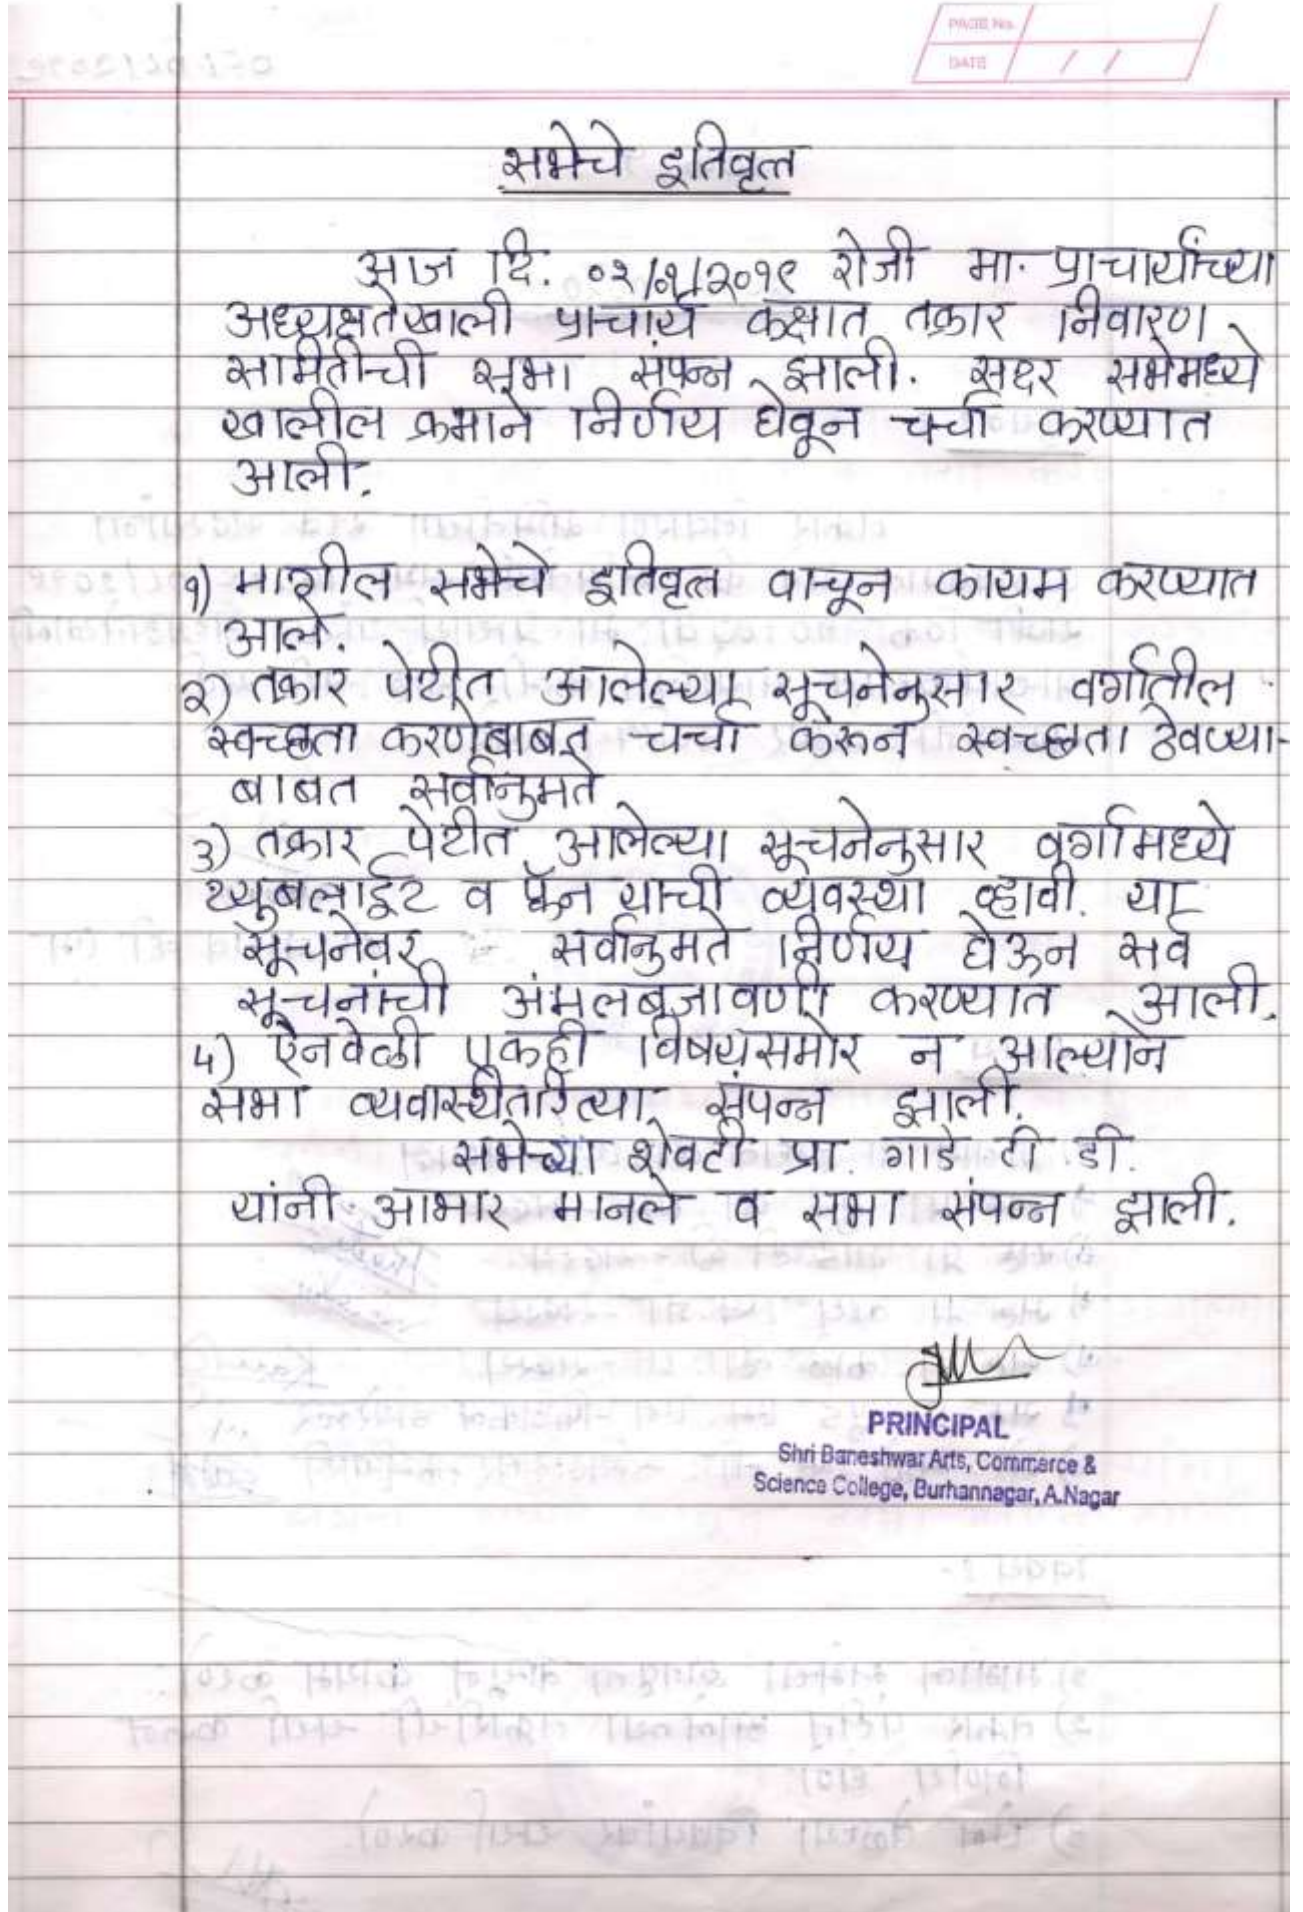 PAGE No.
DATE / /
सभेचे इतिवृत्त
आज दि. ०२/१/२०१९ रोजी मा. प्राचार्यांच्या
अध्यक्षतेखाली प्राचार्य कक्षात तक्रार निवारण
समितीची सभा संपन्न झाली. सदर सभेमध्ये
खालील क्रमाने निर्णय घेवून चर्चा करण्यात
आली.
१) मागील सभेचे इतिवृत्त वाचून कायम करण्यात
आले.
२) तक्रार पेटीत आलेल्या सूचनेनुसार वर्गातील
स्वच्छता करणेबाबत चर्चा करून स्वच्छता ठेवण्या-
बाबत सर्वानुमते
३) तक्रार पेटीत आलेल्या सूचनेनुसार वर्गामध्ये
ट्युबलाईट व फॅन याची व्यवस्था व्हावी. या
सूचनेवर सर्वानुमते निर्णय घेऊन सर्व
सूचनांची अंमलबजावणी करण्यात आली.
४) ऐनवेळी एकही विषयसमोर न आल्याने
सभा व्यवास्थीतरित्या संपन्न झाली.
सभेच्या शेवटी प्रा. गाडे टी. डी.
यांनी आभार मानले व सभा संपन्न झाली.
PRINCIPAL
Shri Baneshwar Arts, Commerce &
Science College, Burhannagar, A.Nagar